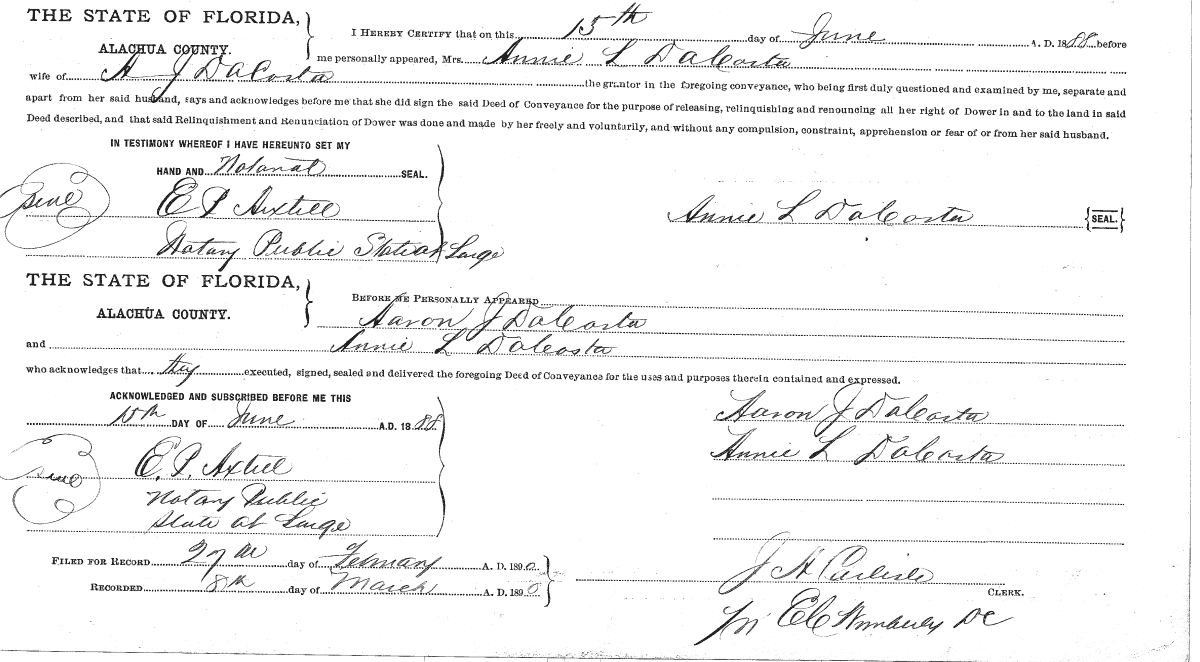 THE STATE OF FLORIDA,
ALACHUA COUNTY.
I HEREBY CERTIFY that on this 15th day of June A. D. 1888 before
me personally appeared, Mrs. Annie L DaCosta
wife of A J DaCosta the grantor in the foregoing conveyance, who being first duly questioned and examined by me, separate and
apart from her said husband, says and acknowledges before me that she did sign the said Deed of Conveyance for the purpose of releasing, relinquishing and renouncing all her right of Dower in and to the land in said
Deed described, and that said Relinquishment and Renunciation of Dower was done and made by her freely and voluntarily, and without any compulsion, constraint, apprehension or fear of or from her said husband.
IN TESTIMONY WHEREOF I HAVE HEREUNTO SET MY
HAND AND Notarial SEAL.
E P Axtell
Annie L DaCosta {SEAL.}
Notary Public State at Large
THE STATE OF FLORIDA,
ALACHUA COUNTY.
BEFORE ME PERSONALLY APPEARED
Aaron J DaCosta
and Annie L DaCosta
who acknowledges that they executed, signed, sealed and delivered the foregoing Deed of Conveyance for the uses and purposes therein contained and expressed.
ACKNOWLEDGED AND SUBSCRIBED BEFORE ME THIS
15th DAY OF June A.D. 1888
Aaron J DaCosta
Annie L DaCosta
E. P. Axtell
Notary Public
State at Large
FILED FOR RECORD 27th day of February A. D. 1890
RECORDED 8th day of March A. D. 1890
J H Carlisle
CLERK.
DC